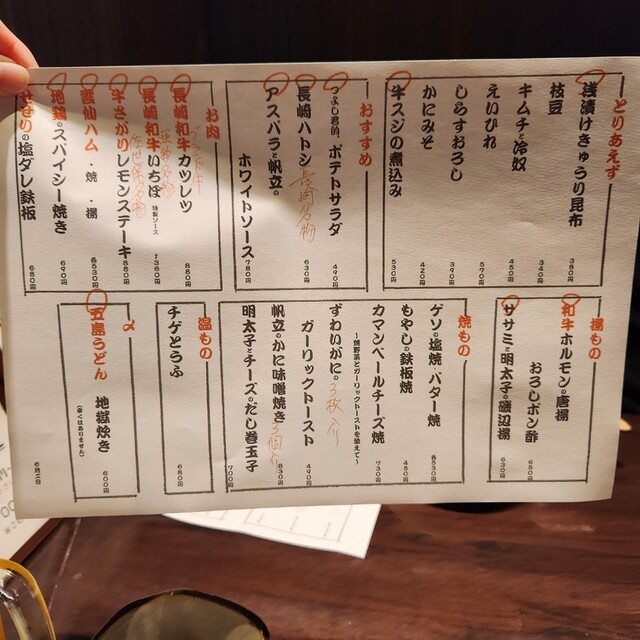 とりあえず
浅漬けきゅうり昆布 380円
枝豆 340円
キムチと冷奴 450円
えいひれ 570円
しらすおろし 390円
かにみそ 420円
牛スジの煮込み 530円
おすすめ
つよし君的、ポテトサラダ 490円
長崎ハトシ 長崎名物 630円
アスパラと帆立の
ホワイトソース 780円
お肉
長崎和牛カツレツ 880円
長崎和牛いちぼ 特製ソース 1360円
牛さがりレモンステーキ 佐世保名物 880円
雲仙ハム・焼・揚 各530円
地鶏のスパイシー焼き 690円
せせりの塩ダレ鉄板 680円
揚もの
和牛ホルモンの唐揚
おろしポン酢 680円
ササミと明太子の磯辺揚 630円
焼もの
ゲソの塩焼・バター焼 各630円
もやしの鉄板焼 450円
カマンベールチーズ焼 730円
～焼野菜とガーリックトーストを添えて～
ずわいがにの 3枚入り
ガーリックトースト 490円
帆立のかに味噌焼き 830円
明太子とチーズのだし巻玉子 700円
温もの
チゲとうふ 680円
〆
五島うどん
地獄炊き 600円
(辛くはありません)
6月二日